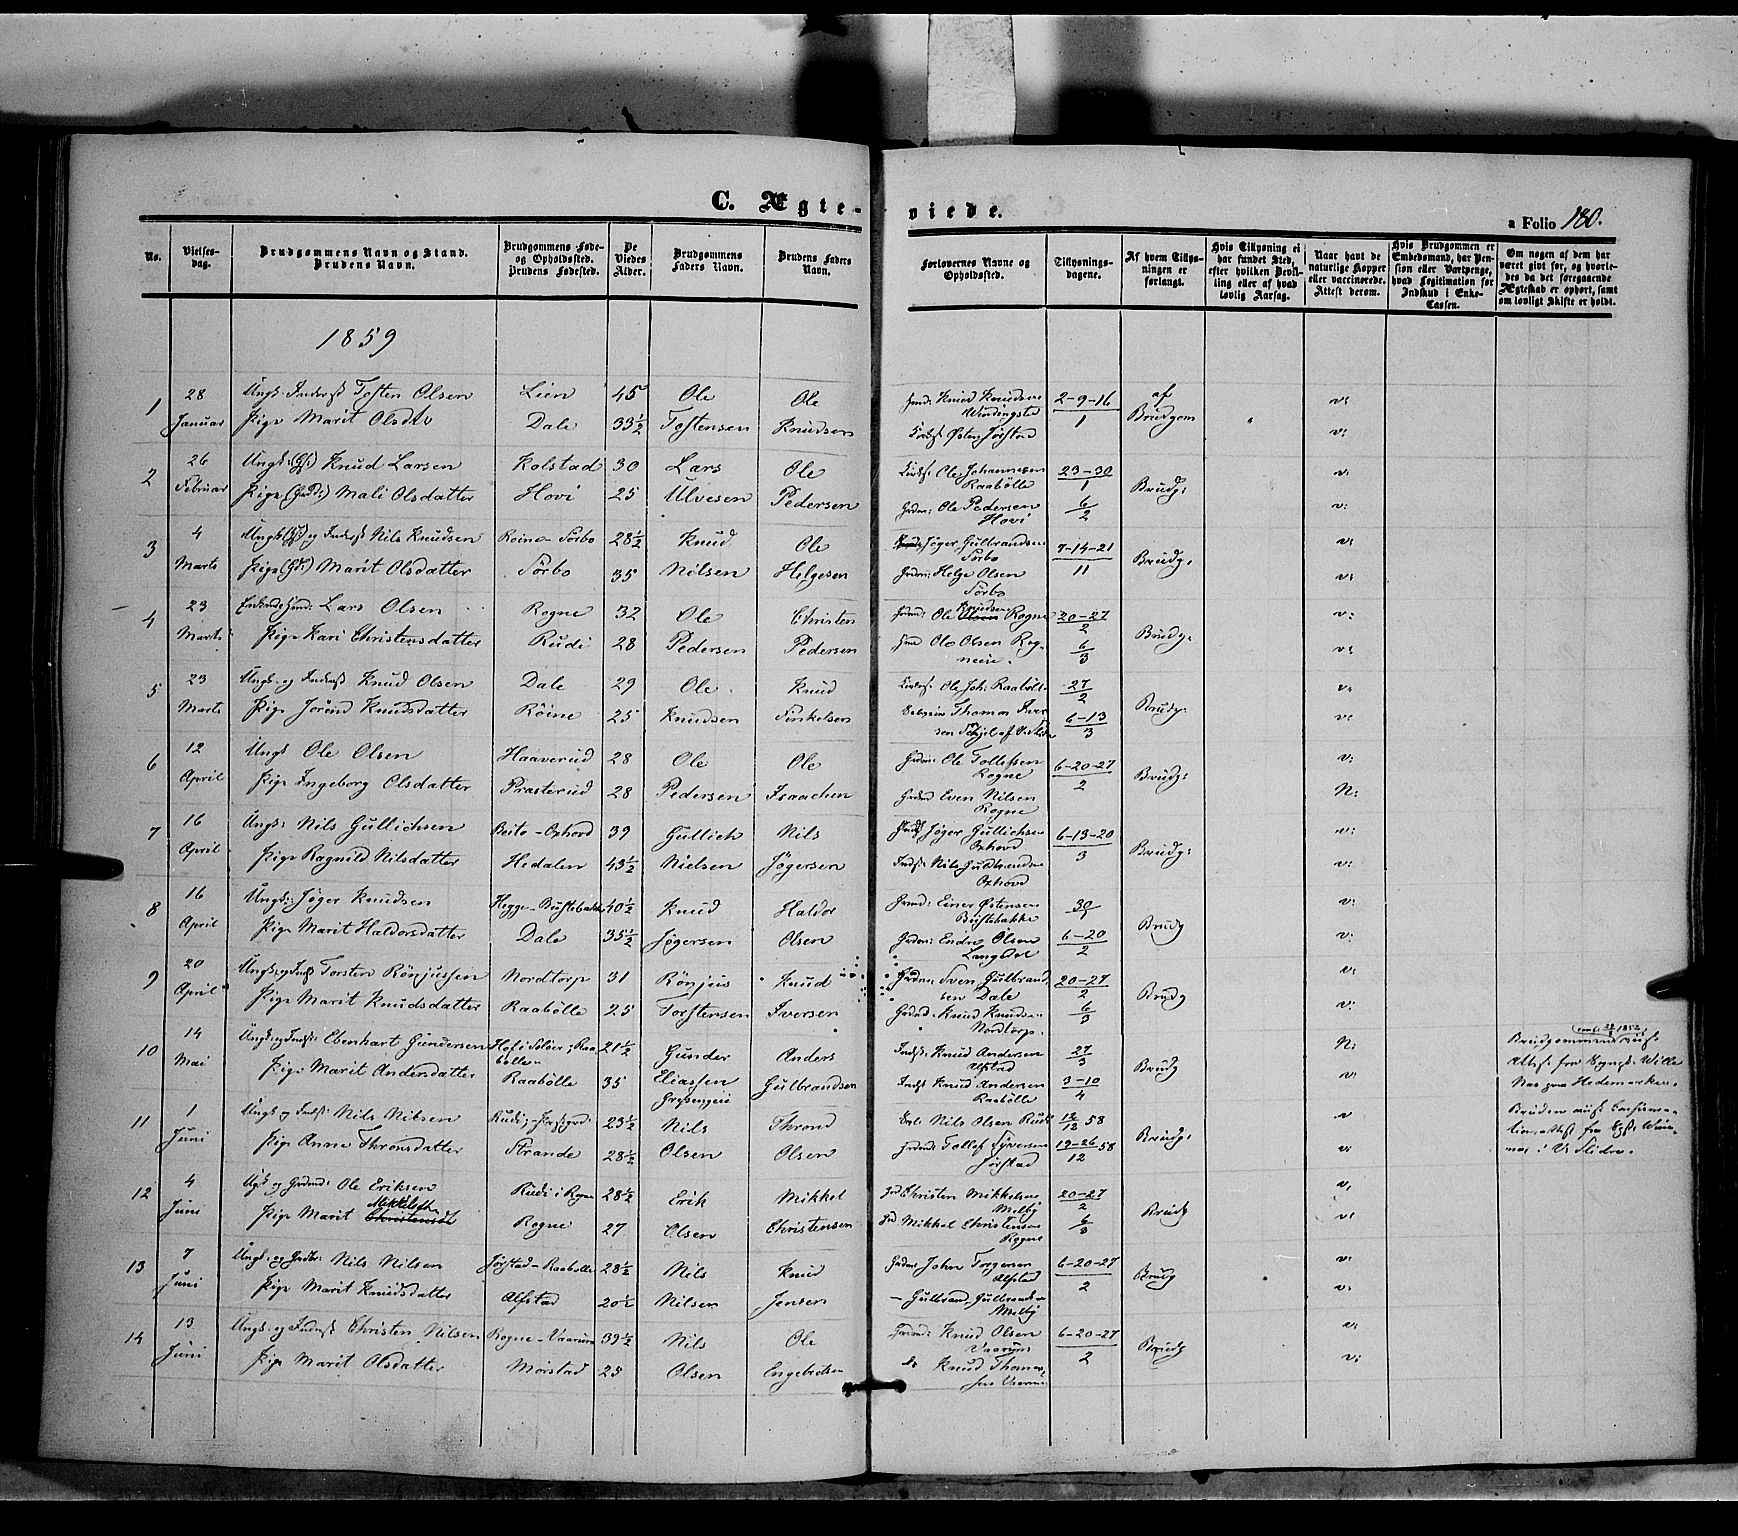 C. Ægte-viede.
a Folio 180.
No.
Vielses-dag.
Brudgommens Navn og Stand. Brudens Navn.
Brudgommens Føde- og Opholdssted. Brudens Fødested.
De Viedes Alder.
Brudgommens Faders Navn.
Brudens Faders Navn.
Forlovernes Navne og Opholdssted.
Tillysnings-dagene.
Af hvem Tillys-ningen er forlangt.
Hvis Tillysning ei har fundet Sted, efter hvilken Bevil-ling eller af hvad lovlig Aarsag.
Naar havt de naturlige Kopper eller vaccinerede. Attest derom.
Hvis Brudgommen er Embedsmand, har Pen-sion eller Vartpenge, hvad Legitimation for Indskud i Enke-Cassen.
Om nogen af dem har været gift før, og hvorle-des da det foregaaende Ægteskab er ophørt, samt om lovligt Skifte er holdt.
1859
1 28 Januar Ungk. Inderst Tosten Olsen Lien 45 Ole Ole Knud Knudsen Windingstad 2-9-16/1 af Brudgom v:
Pige Marit Olsdtr Dale 33½ Tostensen Knudsen Østen Jørstad v:
2 26 Februar Ungk: Knud Larsen Kolstad 30 Lars Ole Ole Johannesen Raabølle 23-30/1 Brudg: v:
Pige Mali Olsdatter Hovi 25 Ulvesen Pedersen Ole Pedersen Hovi 6/2 v:
3 4 Marts Ungk og Inderst Nils Knudsen Røine Sørbo 28½ Knud Ole Jøger Gulbrandsen Sørbo 7-14-21/11 Brudg. v:
Pige Marit Olsdatter Sørbo 35 Nilsen Helgesen Helge Olsen Sørbo v:
4 23 Marts Enkemd Lars Olsen Rogne 32 Ole Christen Ole Knudsen Rogne 20-27/2 Brudg: v:
Pige Kari Christensdatter Rudi 28 Pedersen Pedersen Ole Olsen Rogneeie. 6/3 v:
5 23 Marts Ungk. og Inderst Knud Olsen Dale 29 Ole Knud Ole Joh: Raabøl 27/2 Brudg: v:
Pige Jørend Knudsdatter Röine 25 Knudsen Finkelsen Thomas 6-13/3 v:
6 12 April Ungk Ole Olsen Haaverud 28 Ole Ole Ole Tollefsen Rogne 6-20-27/2 Brudg: v:
Pige Ingeborg Olsdatter Præsterud 28 Pedersen Isaachsen Even Nilsen Rogne N:
7 16 April Ungk: Nils Gullichsen Beito-Oxhovd 39 Gullich Nils Jøger Gullichsen Oxhovd 6-13-20/3 Brudg: v:
Pige Ragnild Nilsdatter Hedalen 43½ Nielsen Jøgersen Nils Gulbrandsen Oxhovd v:
8 16 April Ungk: Jøger Knudsen Hegge-Bustebakke 40½ Knud Haldor Einer Østensen Bustebakke 30/1 Brudg v:
Pige Marit Haldorsdatter Dale 35½ Jøgersen Olsen Endre Olsen Langstøl 6-20/2 v:
9 20 April Ungk: og Inds Torsten Rönjussen Nordtorp 31 Rönjus Knud Sven Gulbrandsen Dale 20-27/2 Brudg v:
Pige Marit Knudsdatter Raabölle 25 Torstensen Iversen Knud Knudsen Nordtorp. 6/3 v:
10 14 Mai Ungk: og Inds: Ebenhart Gundersen Hof i Soløer; Raabølle 21½ Gunder Anders Knud Andersen Alfstad 27/3 Brudg N:
Pige Marit Andersdatter Raabölle 35 Eliassen Gulbrandsen Knud Andersen Raabølle 3-10/4 v:
Brudgommens Attest fra Wille
Brudens Slidre.
11 1 Juni Ungk og Inds: Nils Nilsen Rudi; 23½ Nils Thrond Nils Olsen Rudi 12/12 58 Brudg: v
Pige Anne Thronsdatter Strande 28½ Olsen Olsen Tollef Syversen Jørstad 19-26/12 58 v:
12 4 Juni Ugk og Grdmd: Ole Eriksen Rudi i Rogne 28½ Erik Mikkel Christen Mikkelsen Melby 20-27/2 Brudg v:
Pige Marit Mikkelsdtr Christensdt Rogne 27 Olsen Christensen Mikkel Christensen Rogne 6/3 v:
13 7 Juni Ungk: og Nils Nilsen Jørstad-Raabølle 28½ Nils Knud John Torgersen Alfstad 6-20-27/2 Brudg v:
Pige Marit Knudsdatter Alfstad 20½ Nilsen Jensen Gulbrand Gulbrandsen Melby v:
14 13 Juni Ungk. og Inderst Christen Nilsen Rogne-Vaarum 39½ Nils Ole Knud Olsen Vaarum 6-20-27/2 Brudg v:
Pige Marit Olsdatter Mörstad 25 Olsen Engebretsen Knud Thomassen Vaarum v: